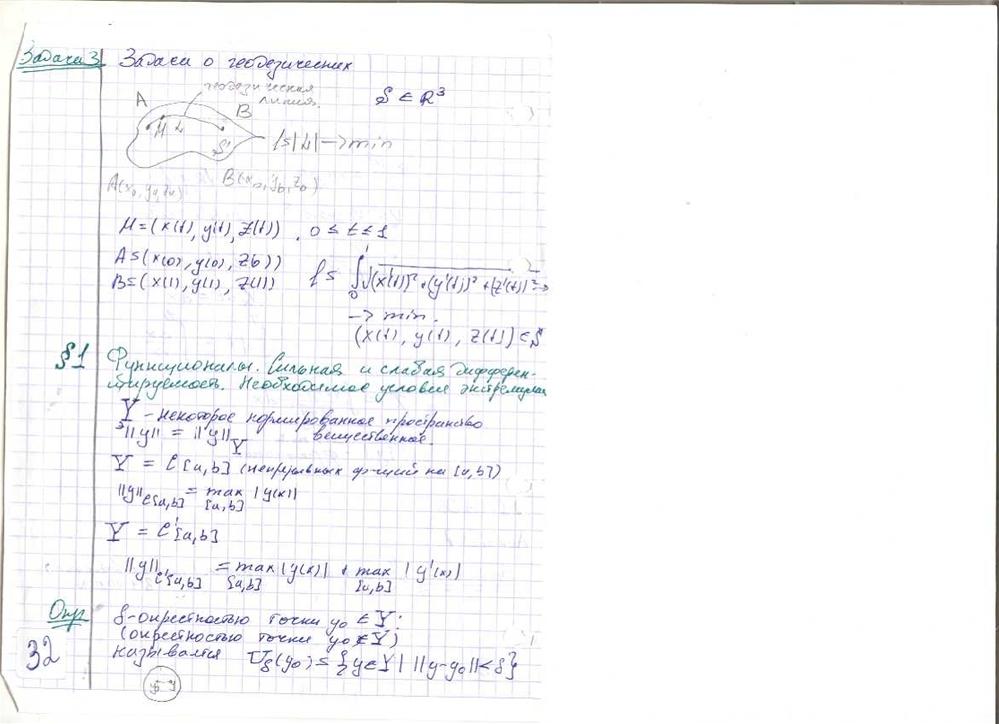 Задача 3 Задача о геодезических
геодезическая
линия.
S ∈ R³
A
B
M L
S
l = |L| → min
A(x₀, y₀, z₀)
B(x₀, y₀, z₀)
M = (x(t), y(t), z(t)), 0 ≤ t ≤ 1
A = (x(0), y(0), z(0))
B = (x(1), y(1), z(1))
l = ∫₀¹ √((x'(t))² + (y'(t))² + (z'(t))²) →
→ min.
(x(t), y(t), z(t)) ∈ S
§1 Функционалы. Сильная и слабая дифферен-
цируемость. Необходимое условие экстремума
Y - некоторое нормированное пространство
||y|| = ||y||_Y вещественное.
Y = C[a,b] (непрерывных ф-ций на [a,b])
||y||_C[a,b] = max |y(x)|
[a,b]
Y = C'[a,b]
||y||_C'[a,b] = max |y(x)| + max |y'(x)|
[a,b] [a,b]
Опр δ-окрестностью точки y₀ ∈ Y:
(окрестностью точки y₀ ∈ Y)
называется U_δ(y₀) = {y ∈ Y | ||y-y₀|| < δ}
32